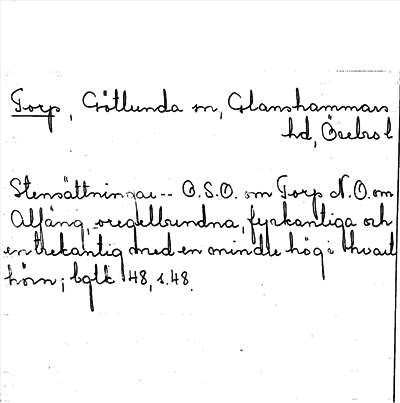 Torp, Götlunda sn, Glanshammars
hd, Örebro l
Stensättningar -- O.S.O. om Torp N.O. om
Alfäng, oregelbundna, fyrkantiga och
en trekantig med en mindre hög i hvart
hörn; bgtl 48, s. 48.